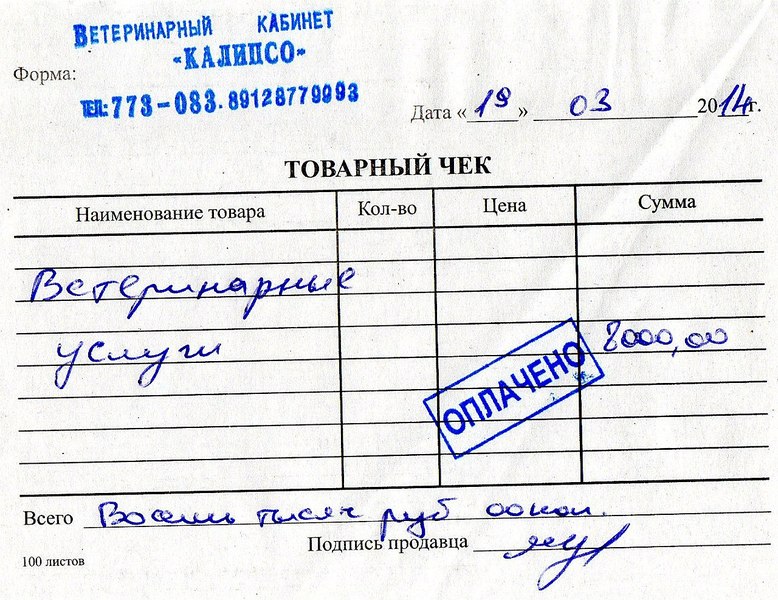 ВЕТЕРИНАРНЫЙ КАБИНЕТ
«КАЛИПСО»
Форма:
ТЕЛ.: 773-083. 89128779993
Дата «19» 03 2014г.
ТОВАРНЫЙ ЧЕК
Наименование товара Кол-во Цена Сумма
Ветеринарные
услуги 8000,00
ОПЛАЧЕНО
Всего Восемь тысяч руб 00 коп.
Подпись продавца
100 листов